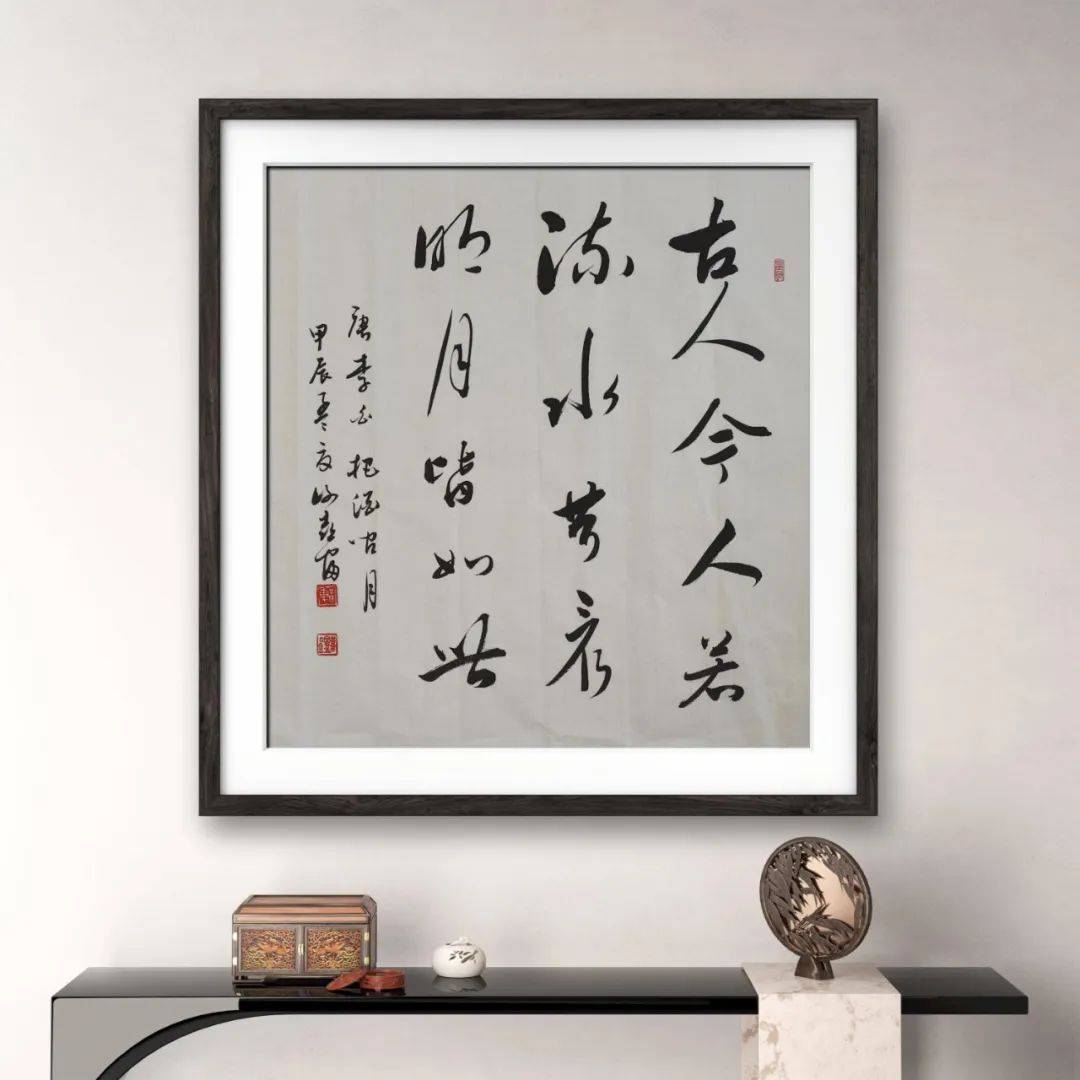 古人今人若
流水共看
明月皆如此
唐李白把酒问月
甲辰孟夏